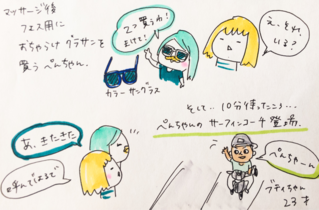 マッサージ後
フェス用に
おちゃらけグラサンを
買うぺんちゃん。
2つ買うわ!
まけて!
え、それ、
いる?
カラーサングラス
そして…10分後ったころ…
ぺんちゃんのサーフィンコーチ登場。
あ、きたきた
ぺんちゃーん
ブディちゃん
23才